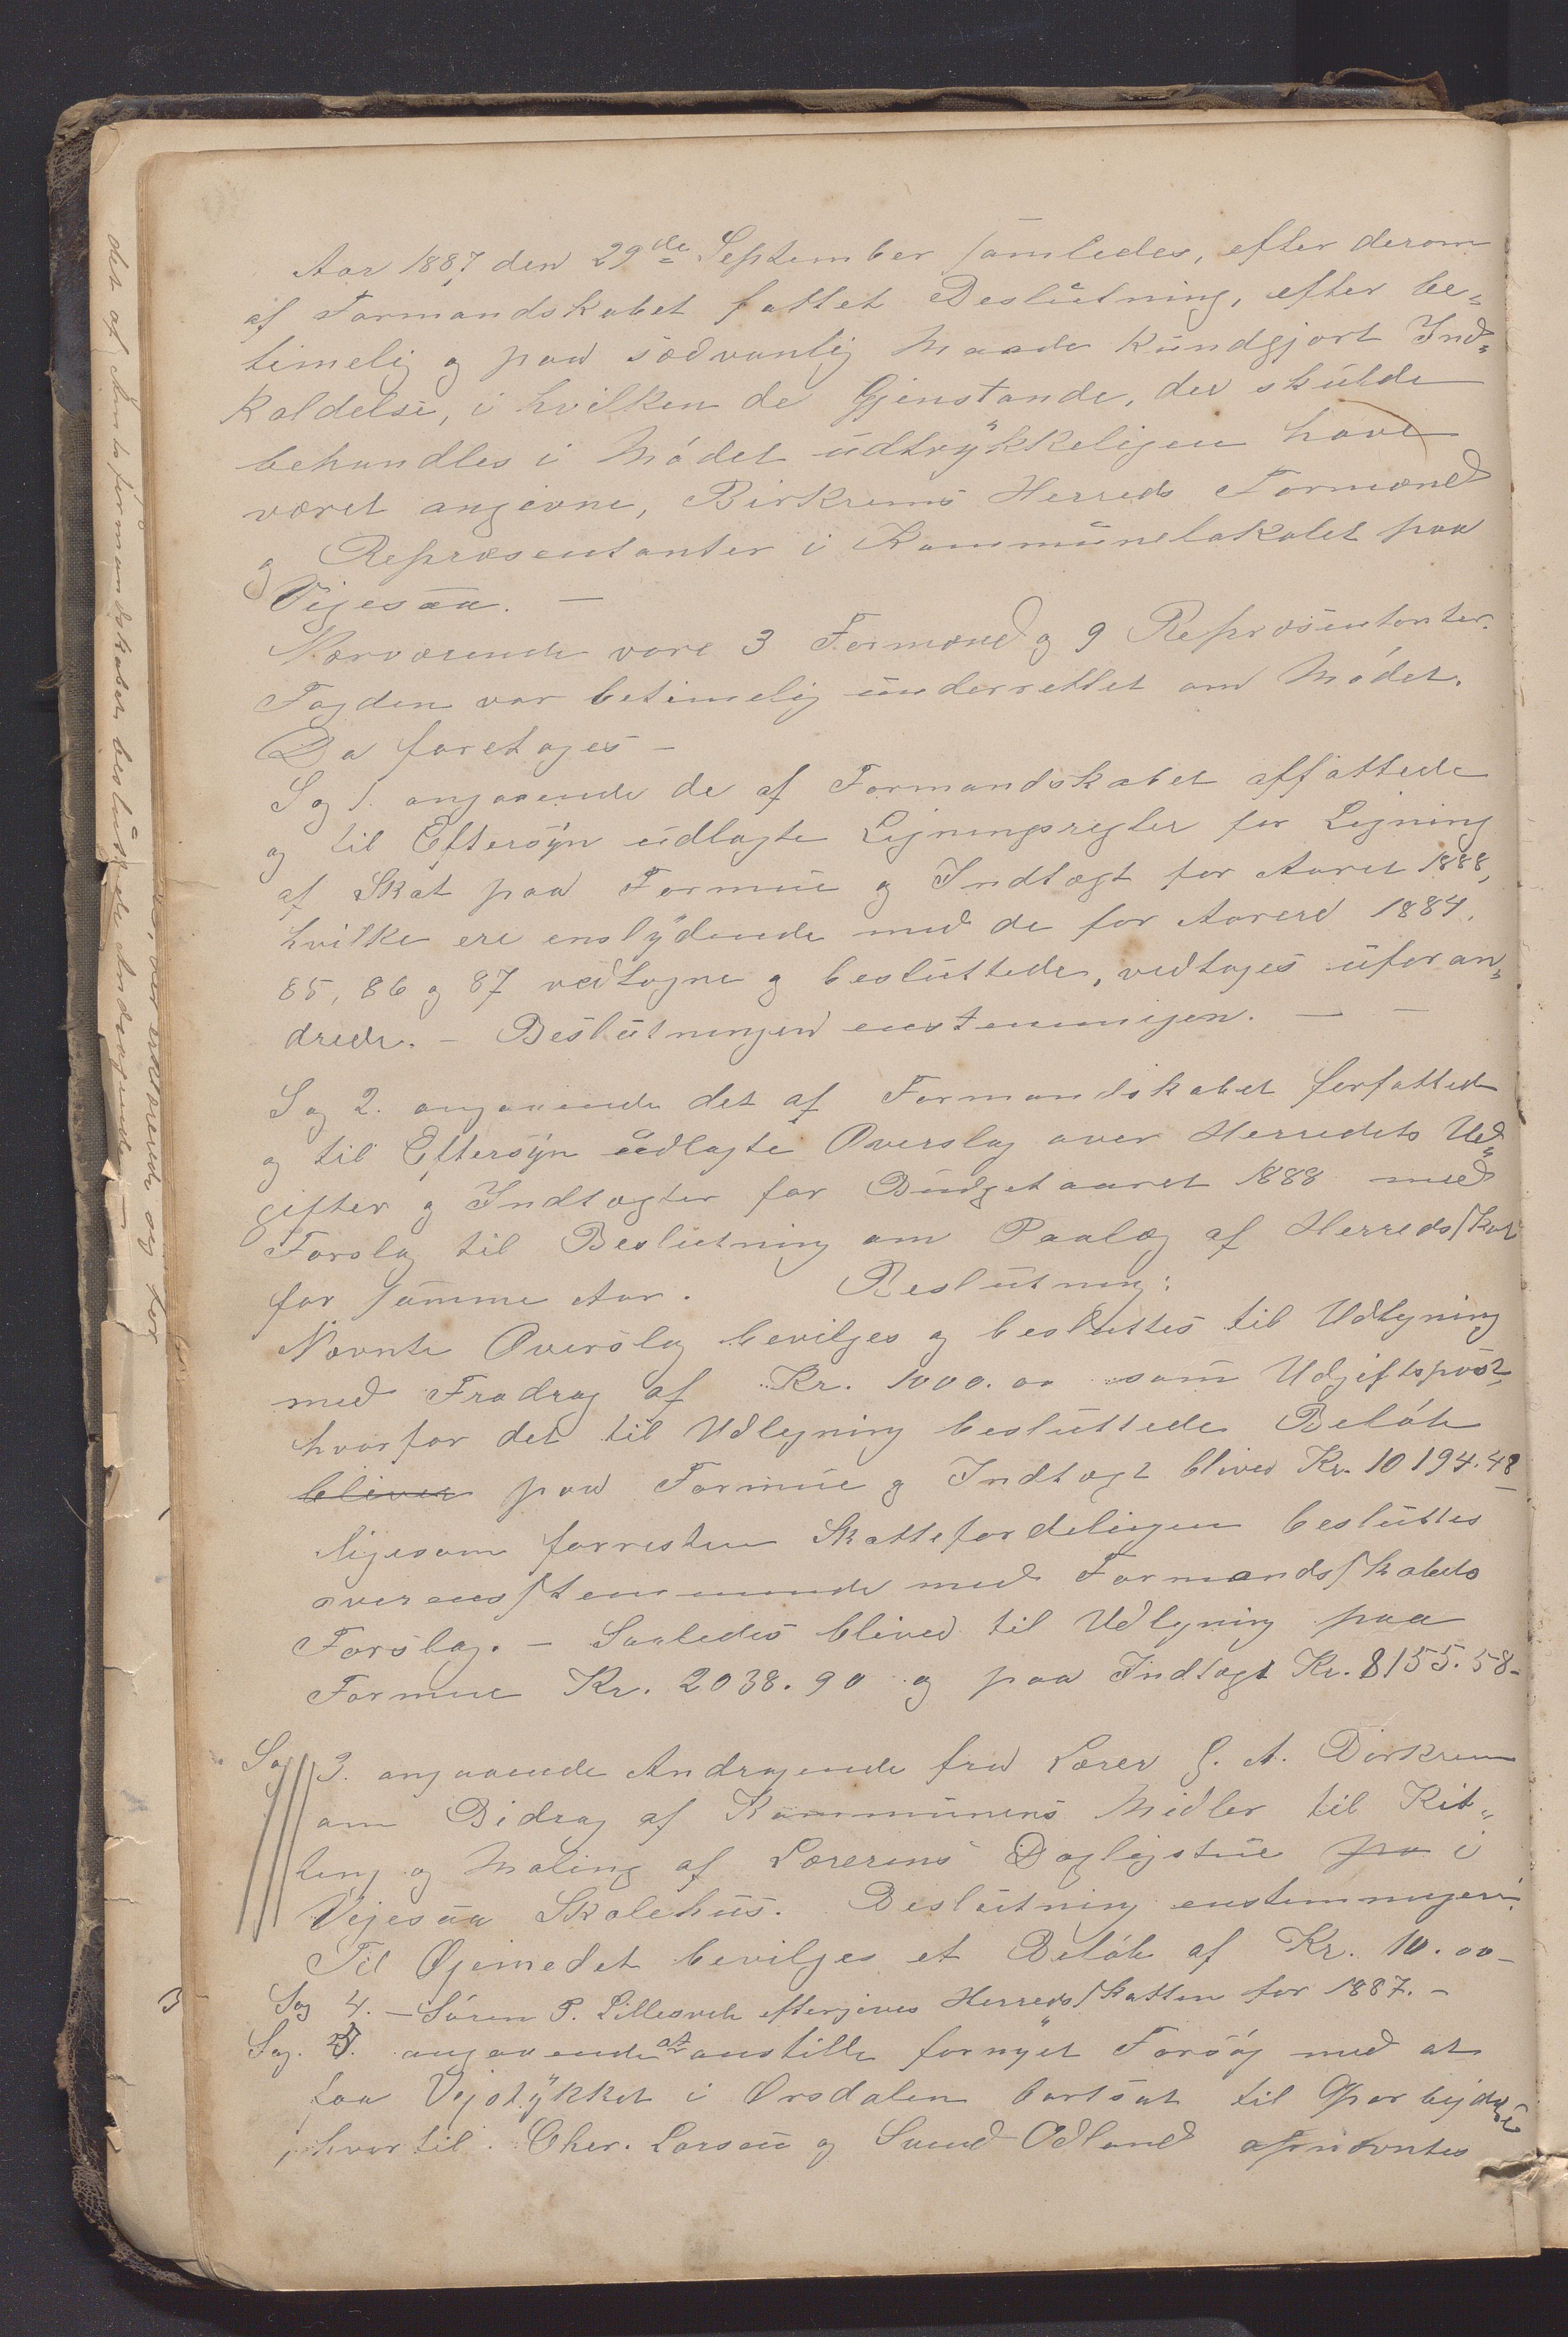 Aar 1887, den 29de September samledes, efter derom
af Formandskabet fattet Beslutning, efter be-
timelig og paa sædvanlig Maade kundgjort Ind-
kaldelse, i hvilken de Gjenstande, der skulde
behandles i Mødet udtrykkeligen have
været angivne, Birkrems Herreds Formænd
og Repræsentanter i Kommunelokalet paa
Vigesaa. —
Nærværende vare 3 Formænd og 9 Repræsentanter.
Fogden var betimelig underrettet om Mødet.
Da foretoges —
Sag 1. angaaende de af Formandskabet affattede
og til Eftersyn udlagte Ligningsregler for Ligning
af Skat paa Formue og Indtægt for Aaret 1888,
hvilke ere enslydende med de for Aarene 1884,
85, 86 og 87 vedtagne og besluttede, vedtoges uforan-
drede. — Beslutningen enstemmigen. — —
Sag 2. angaaende det af Formandskabet forfattede
og til Eftersyn udlagte Overslag over Herredets Ud-
gifter og Indtægter for Budgetaaret 1888 med
Forslag til Beslutning om Paalæg af Herredsskat
for samme Aar. Beslutning:
Nævnte Overslag bevilges og besluttes til Udligning
med Fradrag af Kr. 1000.00 som Udgiftspost,
hvorfor det til Udligning besluttede Beløb
bliver paa Formue og Indtægt bliver Kr. 10194.48
ligesom forresten Skattefordelingen besluttes
overensstemmende med Formandsskabets
Forslag. — Saaledes bliver til Udligning paa
Formue Kr. 2038.90 og paa Indtægt Kr. 8155.58 —
Sag 3. angaaende Andragende fra Lærer G. A. Birkrem
om Bidrag af Kommunens Midler til Kit-
ting og Maling af Lærerens Dagligstue paa i
Vigesaa Skolehus. Beslutning enstemmigen:
Til Øiemedet bevilges et Beløb af Kr. 10.00 —
Sag 4. — Søren P. eftergives Herredsskatten for 1887. —
Sag. 5. angaaende at anstille fornyet Forsøg med at
faa Vejstykket i Ørsdalen bortsat til Oparbejdelse
hvortil Chr. Larsen og Svend Ødland opnævntes
det af Amtsformandskabet besluttede Andragende —
3